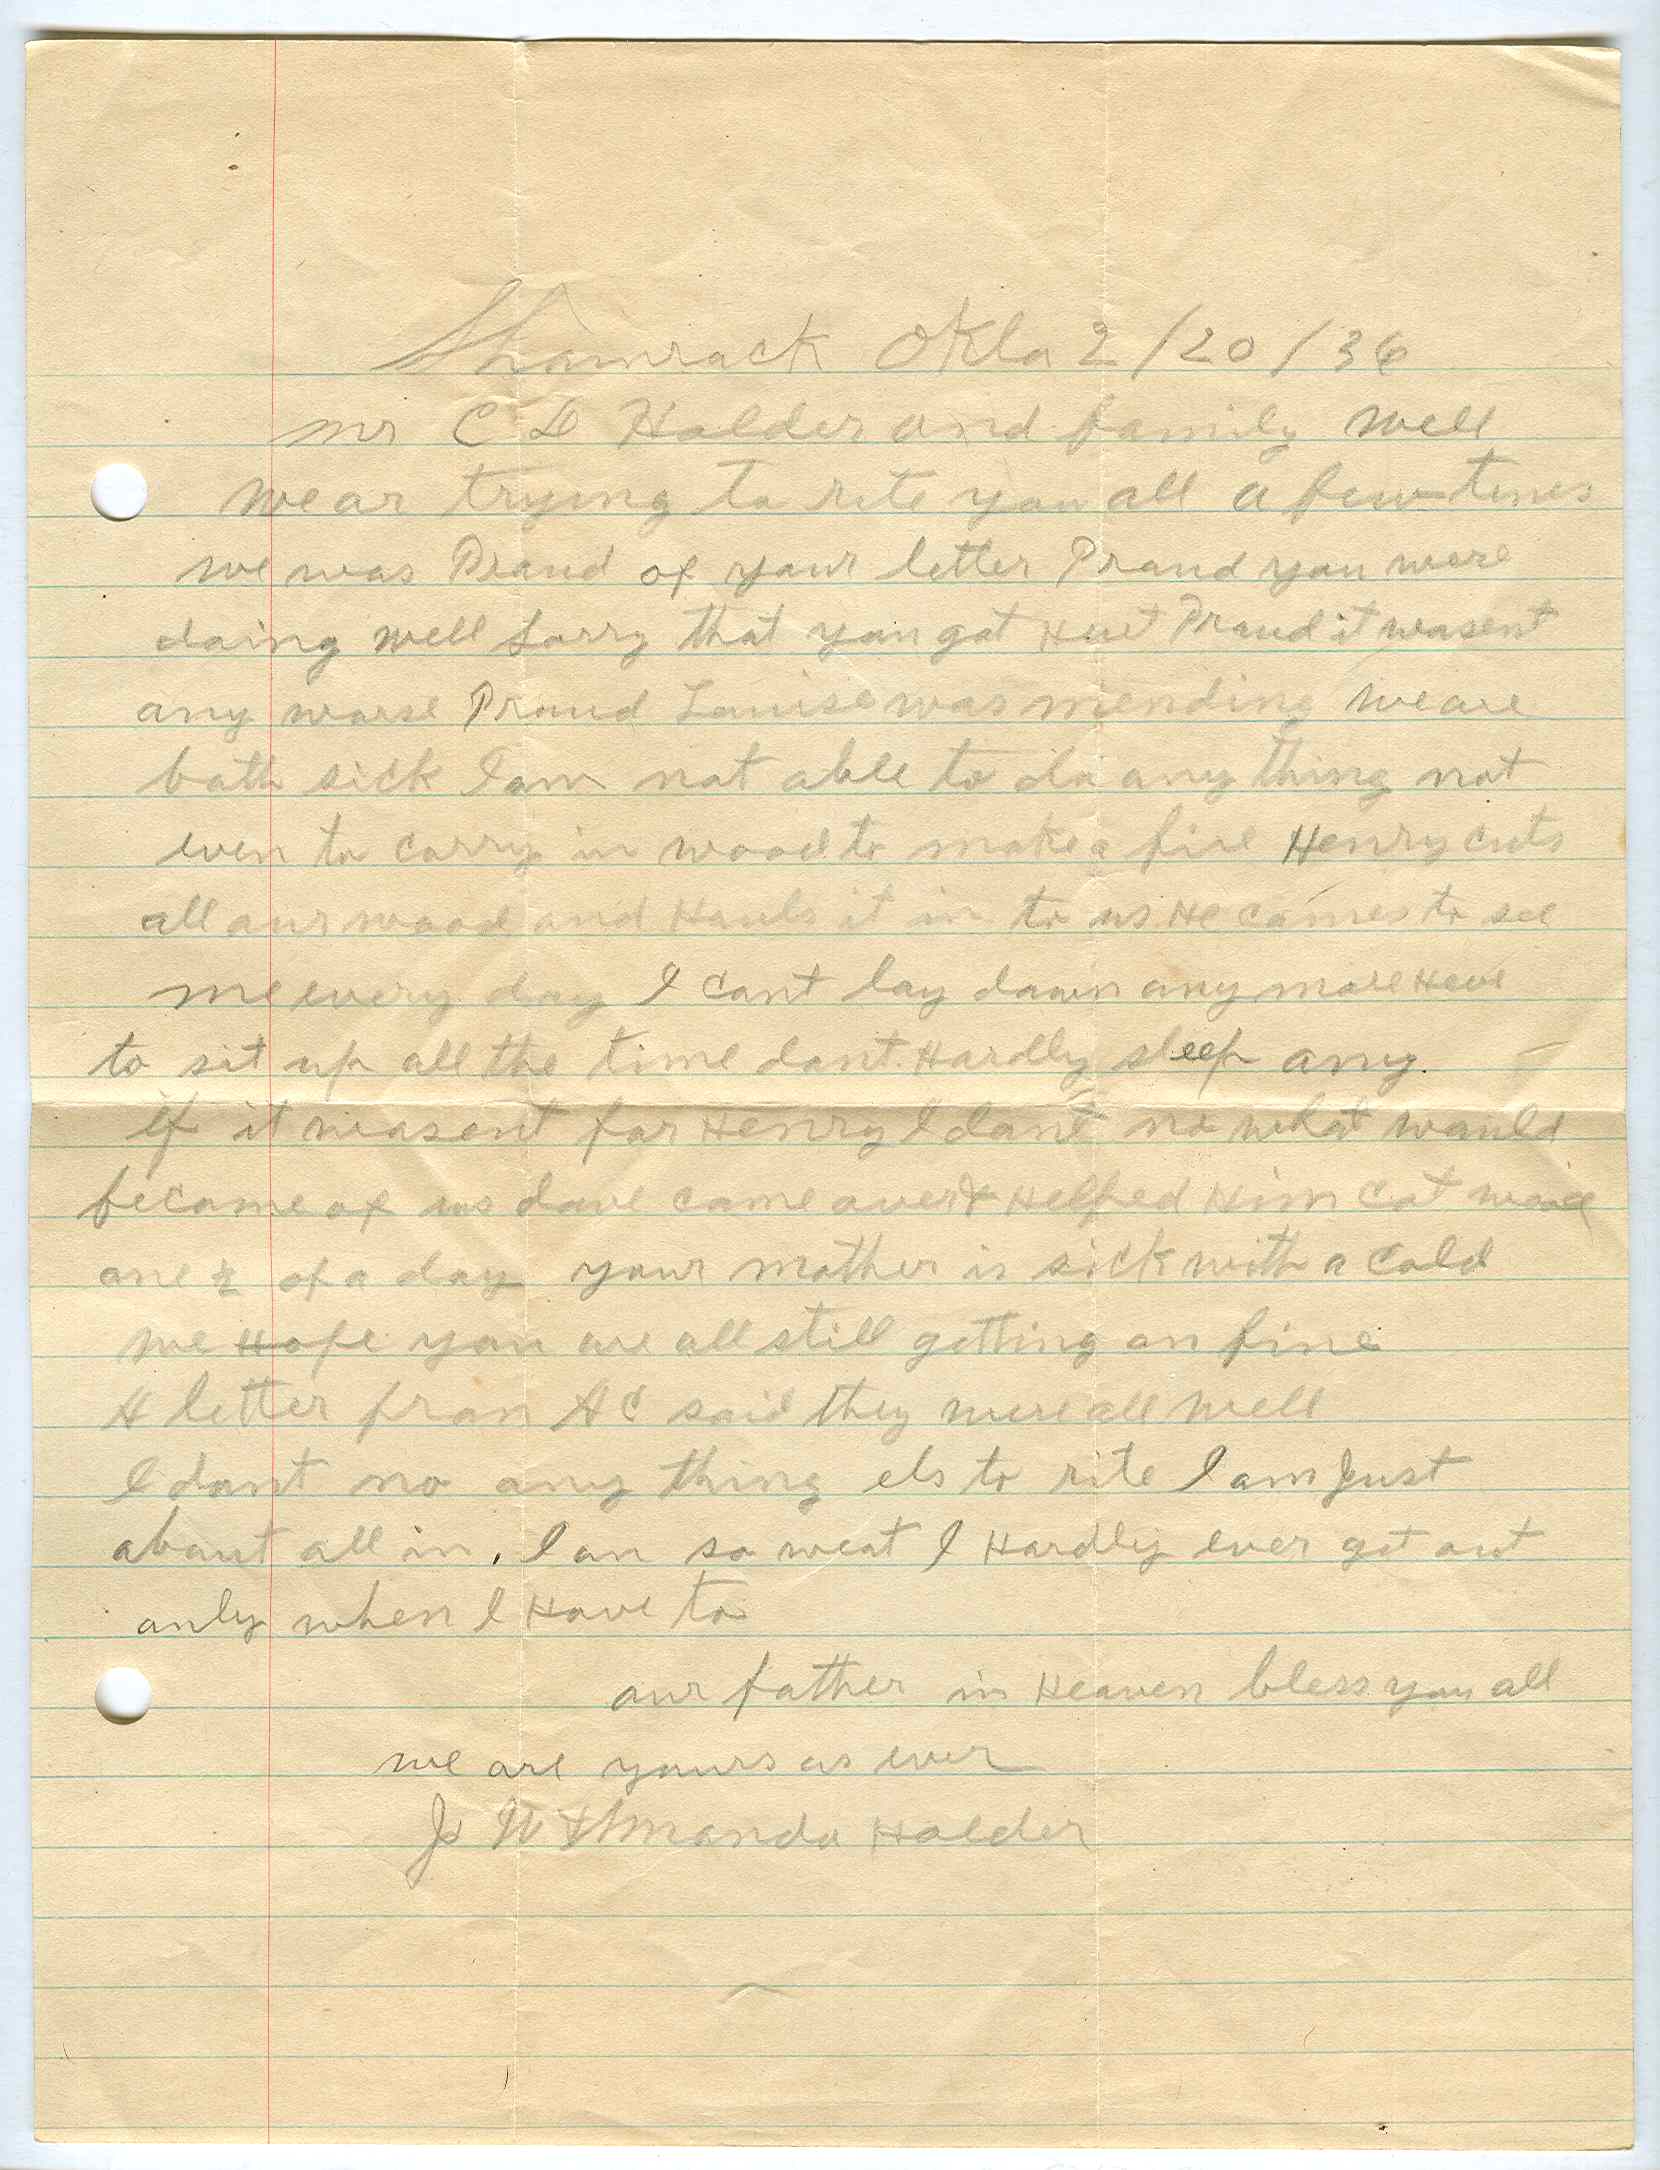 Shamrock Okla 2/20/36
mr C D Holder and family well
we ar trying to rite you all a few lines
we was Proud of your letter Proud you were
doing well Sorry that you got Hurt Proud it wasent
any worse Proud Louise was mending we are
both sick I am not able to do any thing not
even to carry in wood to make a fire Henry cuts
all our wood and Hauls it in to us He comes to see
me every day I cant lay down any more Have
to sit up all the time dont Hardly sleep any.
if it wasent for Henry I dont no what would
become of us dave came over & Helped Him cut wood
one ½ of a day your mother is sick with a cold
we Hope you are all still getting on fine
A letter from AC said they were all well
I dont no any thing els to rite I am Just
about all in. I am so weak I Hardly ever get out
only when I Have to
our father in Heaven bless you all
we are yours as ever
J W & Amanda Holder